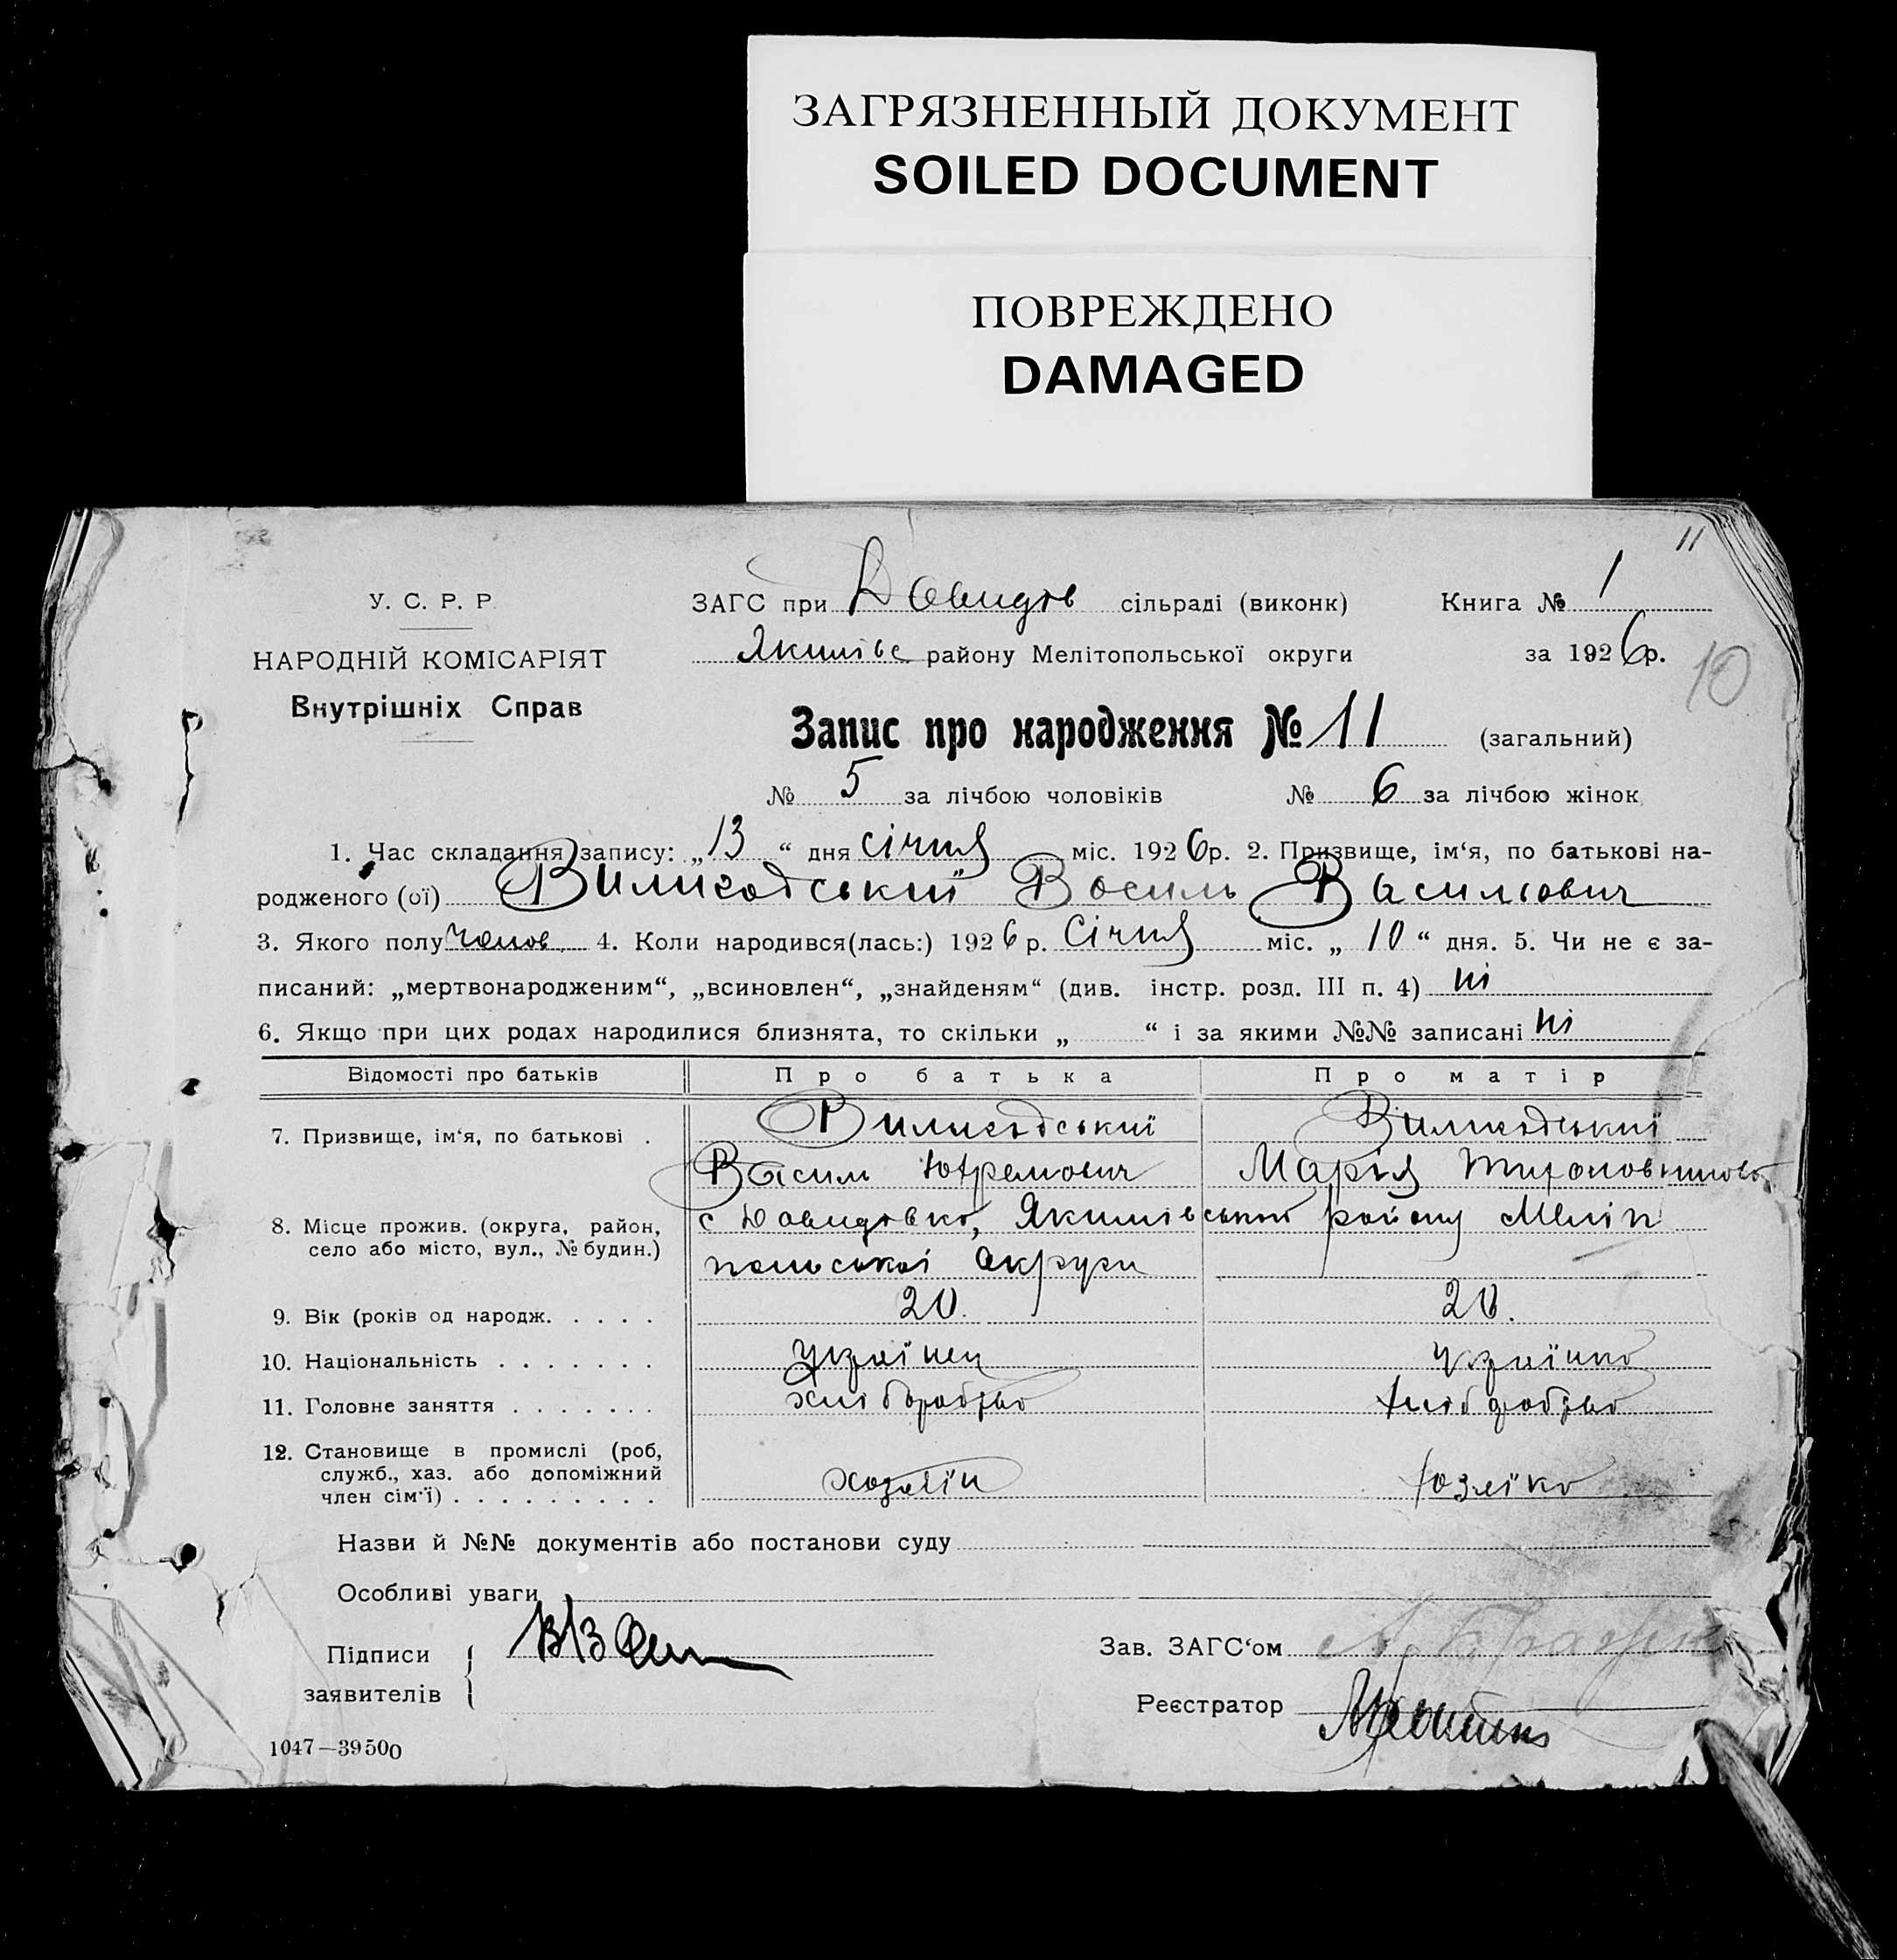 ЗАГРЯЗНЕННЫЙ ДОКУМЕНТ
SOILED DOCUMENT
ПОВРЕЖДЕНО
DAMAGED
11
У. С. Р. Р.
ЗАГС при Давидов сільраді (виконк)
Книга № 1
НАРОДНІЙ КОМІСАРІЯТ
Якимівс району Мелітопольської округи
за 1926 р.
10
Внутрішніх Справ
Запис про народження № 11 (загальний)
№ 5 за лічбою чоловіків № 6 за лічбою жінок
1. Час складання запису: „13“ дня січня міс. 1926 р. 2. Призвище, ім‘я, по батькові на-
родженого (ої) Вилигодський Василь Васильович
3. Якого полу Чолов 4. Коли народився(лась:) 1926 р. Січня міс. „10“ дня. 5. Чи не є за-
писаний: „мертвонародженим“, „всиновлен“, „знайденям“ (див. інстр. розд. III п. 4) ні
6. Якщо при цих родах народилися близнята, то скільки „ “ і за якими №№ записані ні
Відомості про батьків Про батька Про матір
7. Призвище, ім‘я, по батькові . Вилигодський Вилигодський
Василь Юхремович Марія
8. Місце прожив. (округа, район, с Давидовка, Якимівської району Меліто
село або місто, вул., № будин.) польської Округи
9. Вік (років од народж. . . . . 20. 20.
10. Національність . . . . . . . Українец Українка
11. Головне заняття . . . . . . . хліборобство хліборобство
12. Становище в промислі (роб,
служб., хаз. або допоміжний
член сім‘ї) . . . . . . . . . хозяїн хозяїка
Назви й №№ документів або постанови суду
Особливі уваги
Підписи
заявителів
Зав. ЗАГС‘ом
Реєстратор
1047—39500